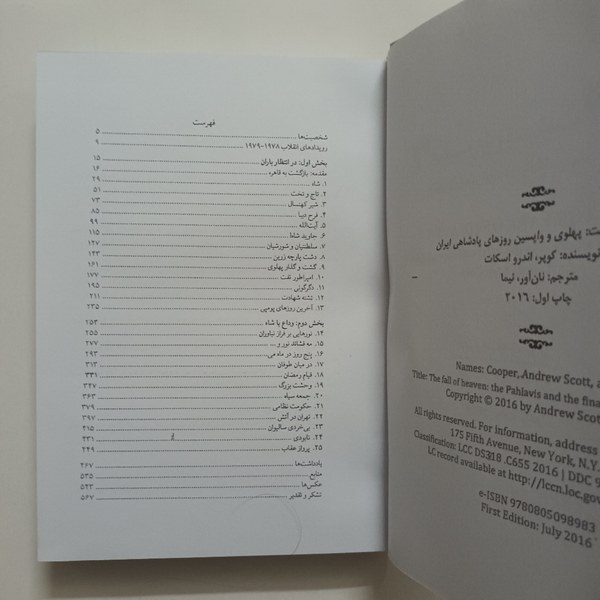 فهرست
شخصیت‌ها ۵
رویدادهای انقلاب ۱۹۷۸-۱۹۷۹ ۹
بخش اول: در انتظار باران ۱۵
مقدمه: بازگشت به قاهره ۱۶
۱. شاه ۲۹
۲. تاج و تخت ۵۱
۳. شیر کهنسال ۷۳
۴. فرح دیبا ۸۵
۵. آیت‌الله ۹۹
۶. جاوید شاه! ۱۱۵
۷. سلطنتیان و شورشیان ۱۲۷
۸. دشت پارچه زرین ۱۴۳
۹. گشت و گذار پهلوی ۱۶۱
۱۰. امپراطور نفت ۱۷۷
۱۱. دگرگونی ۱۹۵
۱۲. تشنه شهادت ۲۱۱
۱۳. آخرین روزهای پومپی ۲۳۵
بخش دوم: وداع با شاه ۲۵۳
۱۴. نورهایی بر فراز نیاوران ۲۵۵
۱۵. مه فشاند نور و ... ۲۷۷
۱۶. پنج روز در ماه می ۲۹۳
۱۷. در میان طوفان ۳۱۳
۱۸. قیام رمضان ۳۳۱
۱۹. وحشت بزرگ ۳۴۷
۲۰. جمعه سیاه ۳۶۳
۲۱. حکومت نظامی ۳۷۹
۲۲. تهران در آتش ۳۹۷
۲۳. بی‌خردی سالیوان ۴۱۵
۲۴. نابودی ۴۳۱
۲۵. پرواز عقاب ۴۴۹
یادداشت‌ها ۴۶۷
منابع ۵۳۵
عکس‌ها ۵۴۳
تشکر و تقدیر ۵۶۷
ت: پهلوی و واپسین روزهای پادشاهی ایران
نویسنده: کوپر، اندرو اسکات
مترجم: نان‌آور، نیما
چاپ اول: ۲۰۱۶
Names: Cooper, Andrew Scott, a
Title: The fall of heaven: the Pahlavis and the fina
Copyright © 2016 by Andrew Scott
All rights reserved. For information, address
175 Fifth Avenue, New York, N.Y.
Classification: LCC DS318 .C655 2016 | DDC 9
LC record available at http://lccn.loc.gov
e-ISBN 9780805098983
First Edition: July 2016